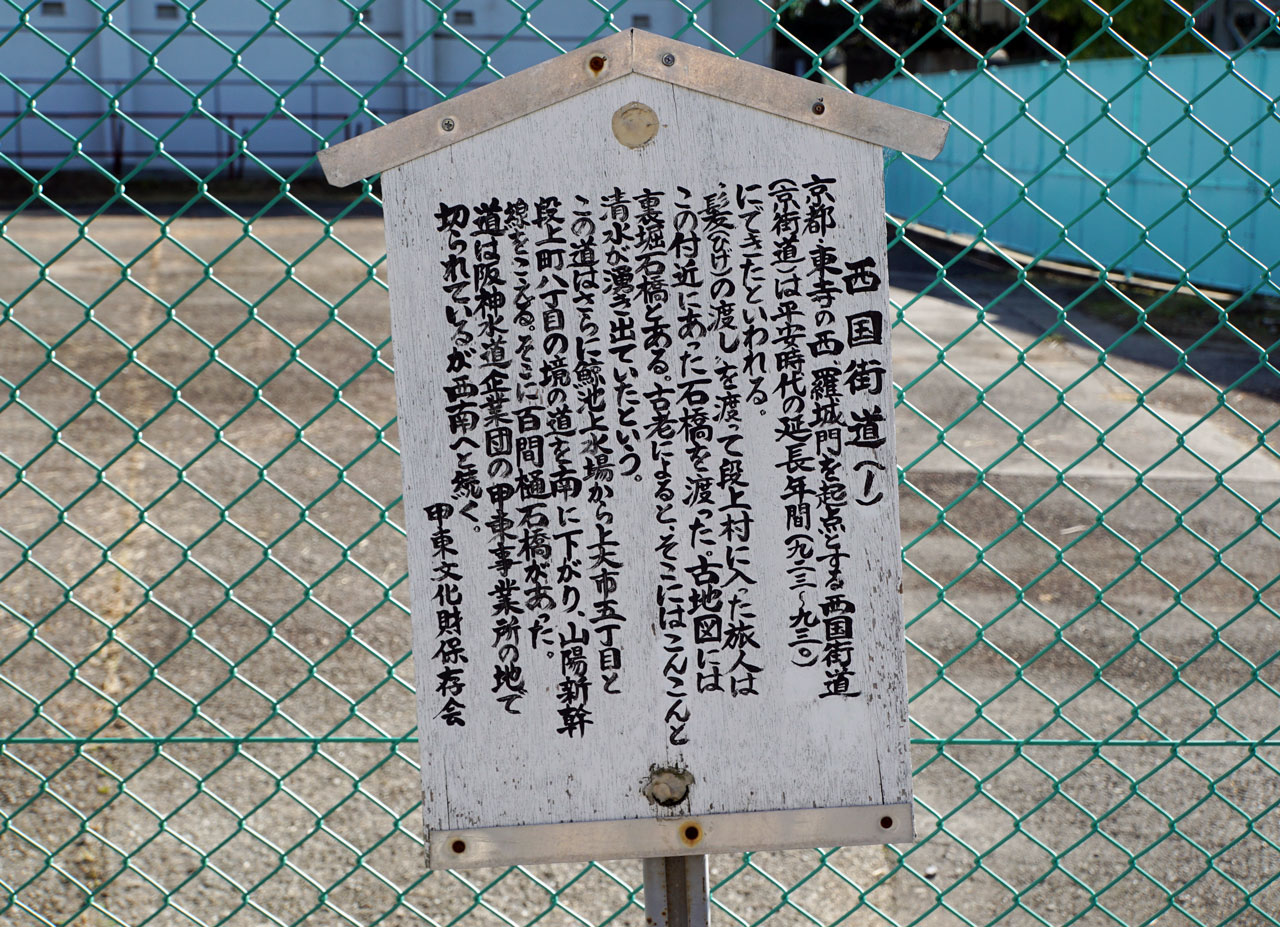 西国街道(一)
京都・東寺の西、羅城門を起点とする西国街道
(京街道)は平安時代の延長年間(九二三〜九三〇)
にできたといわれる。
髭(ひげ)の渡し を渡って段上村に入った旅人は
この付近にあった石橋を渡った。古地図には
裏堀石橋とある。古老によると、そこにはこんこんと
清水が湧き出ていたという。
この道はさらに鯨池上水場から上大市五丁目と
段上町八丁目の境の道を南に下がり、山陽新幹
線をこえる。そこに百間樋石橋があった。
道は阪神水道企業団の甲東事業所の地で
切られているが西南へと続く。
甲東文化財保存会